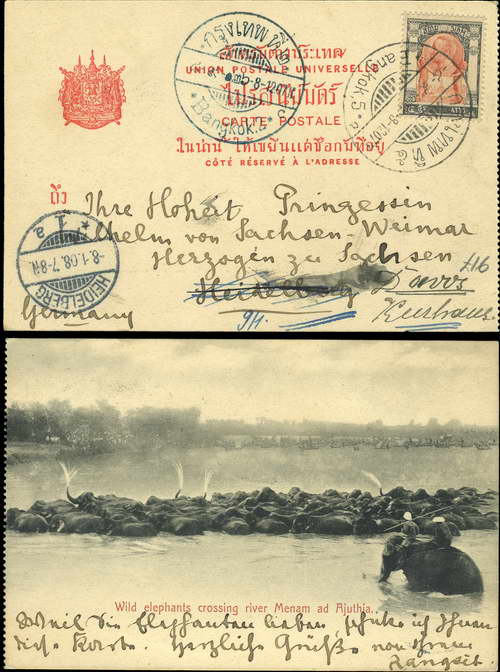 สหพันธไปรสนีย์นานาประเทศ
UNION POSTALE UNIVERSELLE
ไปรสนียบัตร์
CARTE POSTALE
ในด้านนี้ให้เขียนแต่ชื่อกับที่อยู่
CÔTÉ RÉSERVÉ À L'ADRESSE
กรุงเทพฯ
Bangkok 5
Bangkok 5
ถึง
Ihre Hoheit Prinzessin
Wilhelm von Sachsen-Weimar
Herzogin zu Sachsen
Heidelberg Davos
Germany
Kurhaus.
9/1.
£16
HEIDELBERG
-8.1.08.7-8
* 1 a
Wild elephants crossing river Menam ad Ajuthia.
Weil Sie Elephanten lieben, schicke ich Ihnen
diese Karte. Herzliche Grüße von Ihrem
Rangsit